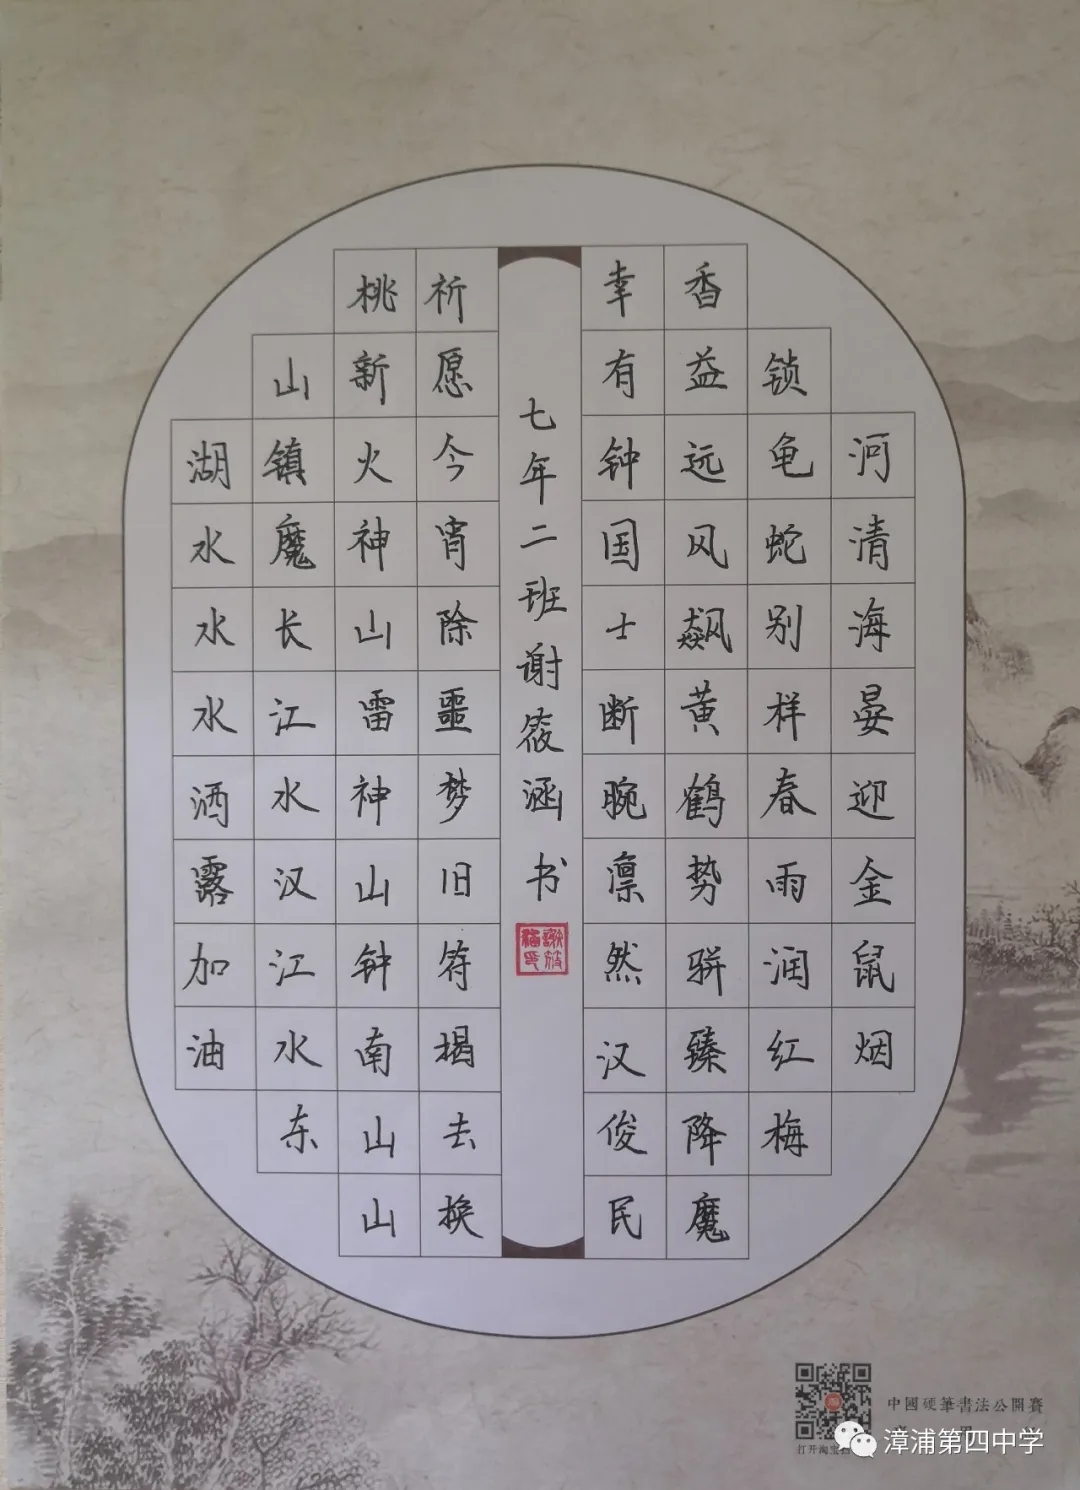 河清海晏迎金鼠烟
锁龟蛇别样春雨润红梅
香益远风飙黄鹤势骈臻降魔
幸有钟国士断腕凛然汉俊民
七年二班谢筱涵书
祈愿今宵除噩梦旧符揭去换
桃新火神山雷神山钟南山山
山镇魔长江水汉江水东
湖水水水洒露加油
中國硬筆書法公開賽
漳浦第四中学